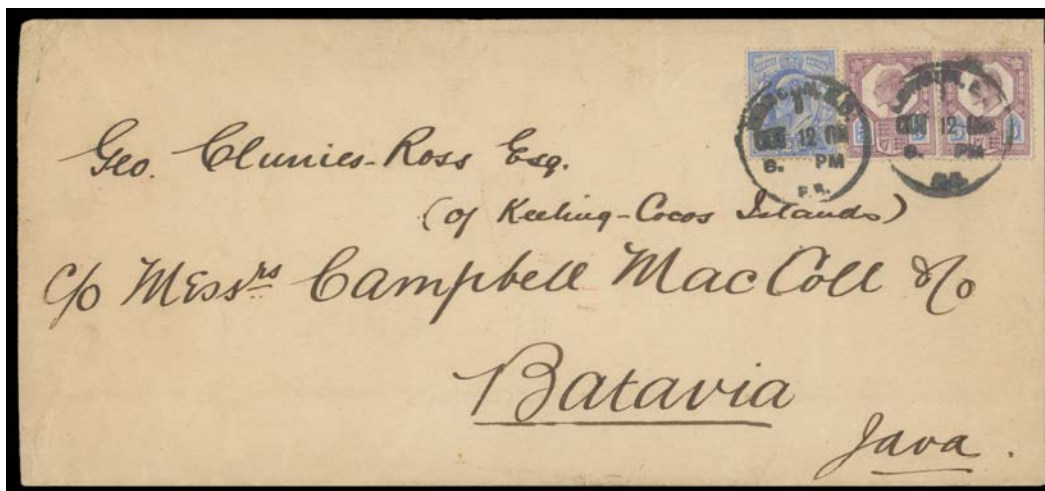 LONDON. E.C. LONDON. E.C.
12 12
6. PM 6. PM
F.S.
Geo. Clunies-Ross Esq.
(of Keeling-Cocos Islands)
c/o Messrs Campbell MacColl & Co
Batavia
Java.